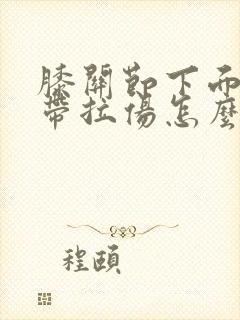 膝關節下面
帶拉傷怎麼
程頤